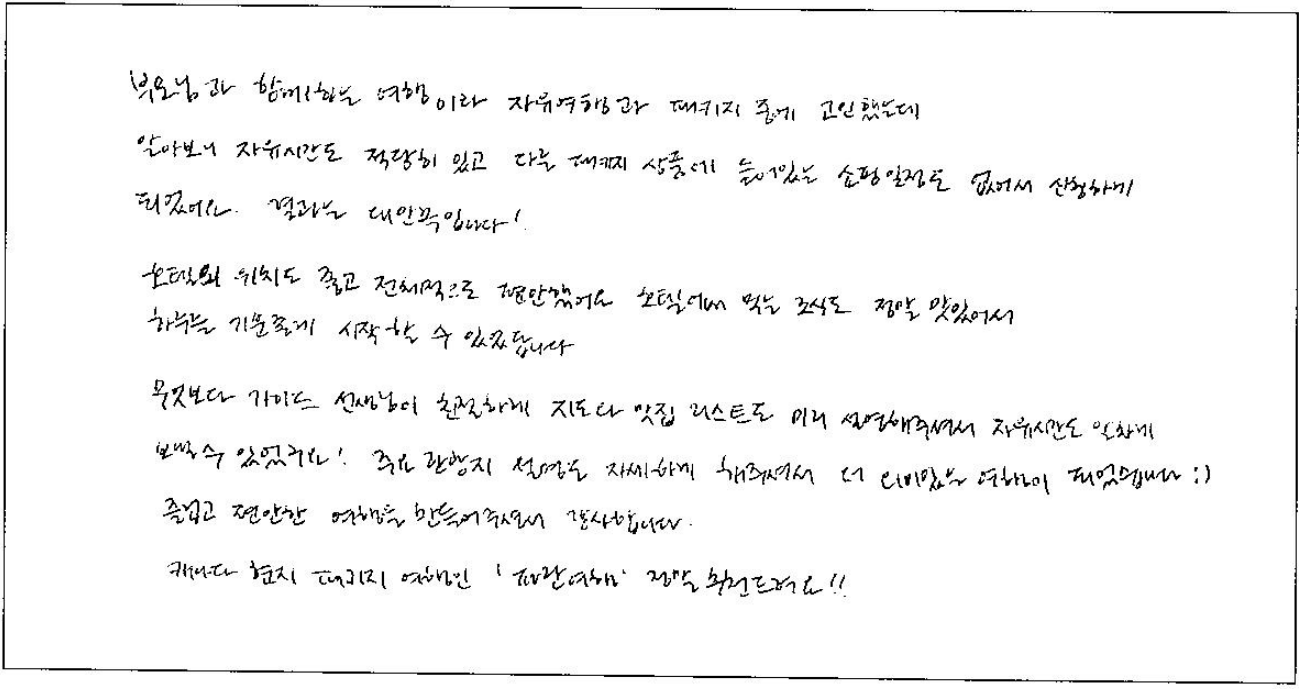 부모님과 함께하는 여행이라 자유여행과 패키지 중에 고민했는데
알아보니 자유시간도 적당히 있고 다른 패키지 상품에 들어있는 쇼핑일정도 없어서 신청하게
되었어요. 결과는 대만족입니다!
호텔의 위치도 좋고 전체적으로 편안했어요 호텔에서 먹는 조식도 정말 맛있어서
하루를 기분좋게 시작할 수 있었답니다
무엇보다 가이드 선생님이 친절하게 지도나 맛집 리스트도 미리 설명해주셔서 자유시간도 알차게
보낼 수 있었구요! 주요 관광지 설명도 자세하게 해주셔서 더 의미있는 여행이 되었습니다 :)
즐겁고 편안한 여행을 만들어주셔서 감사합니다.
캐나다 현지 패키지 여행인 '파란여행' 정말 추천드려요!!